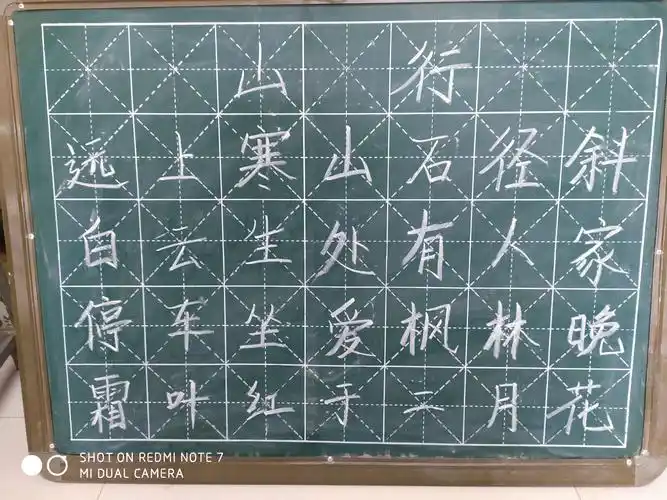 山行
远上寒山石径斜
白云生处有人家
停车坐爱枫林晚
霜叶红于二月花
SHOT ON REDMI NOTE 7
MI DUAL CAMERA